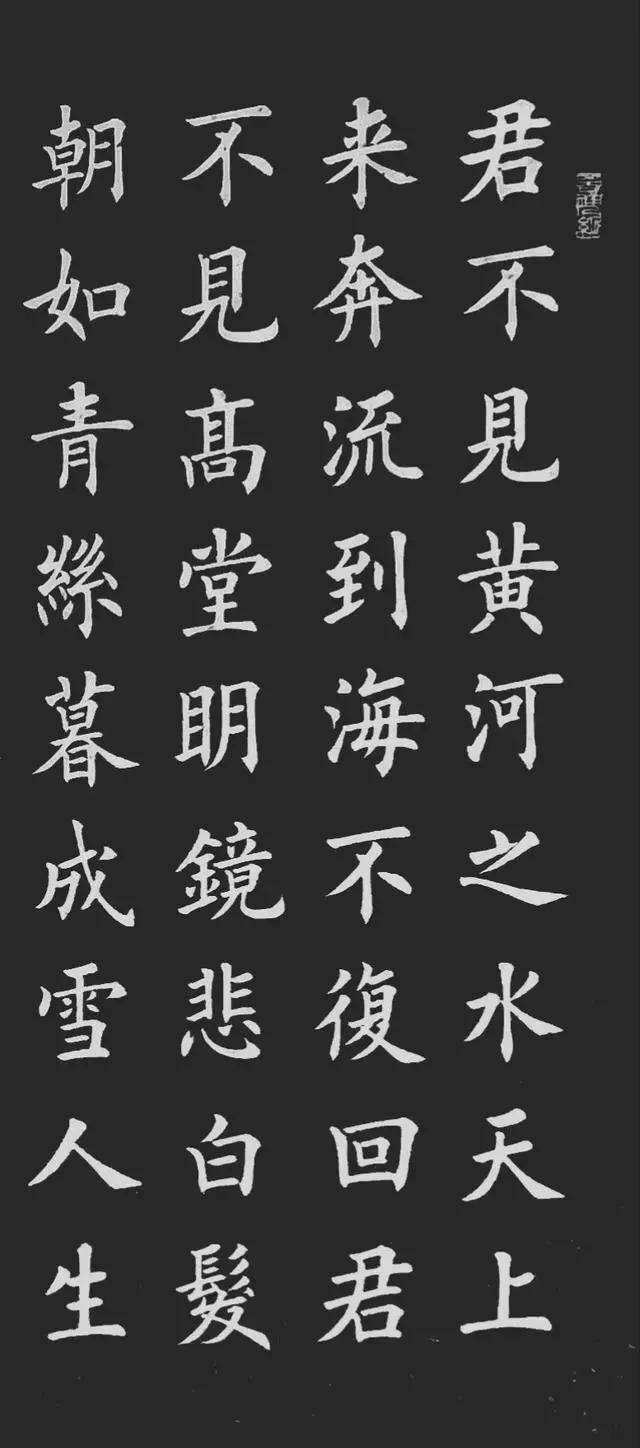 君不見黄河之水天上
来奔流到海不復回君
不見髙堂明鏡悲白髮
朝如青絲暮成雪人生